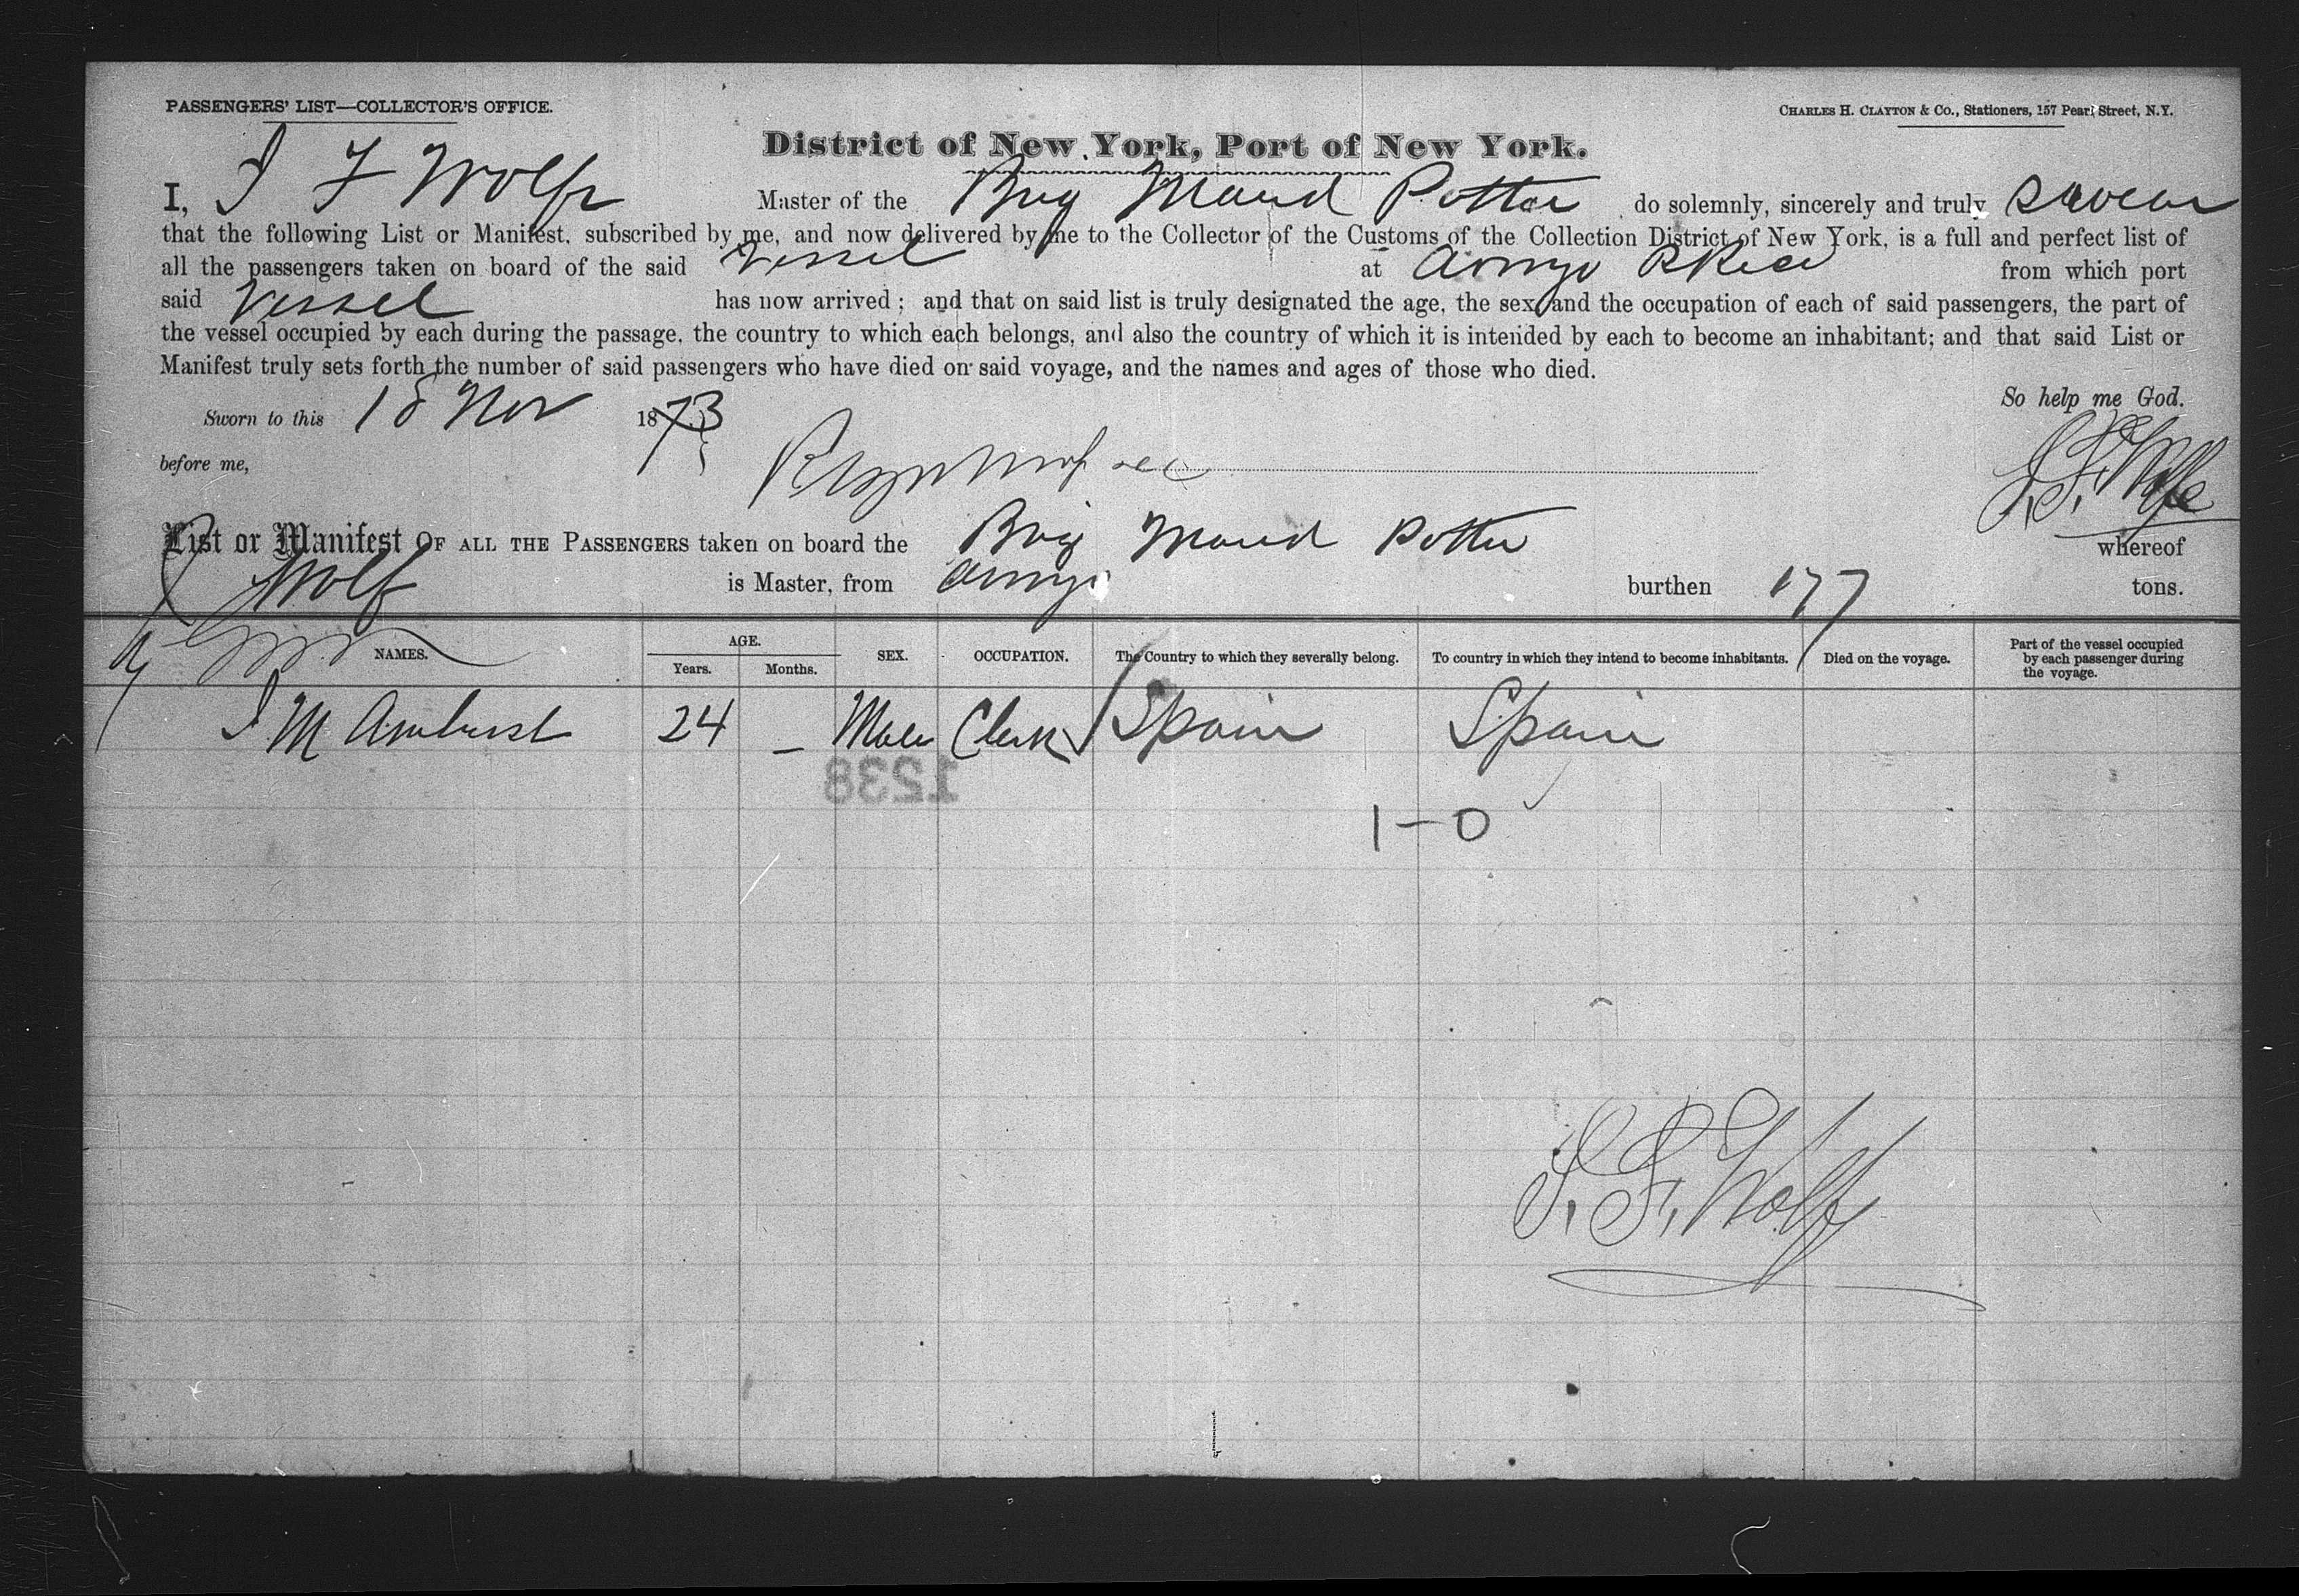 PASSENGERS' LIST—COLLECTOR'S OFFICE.
CHARLES H. CLAYTON & Co., Stationers, 157 Pearl Street, N.Y.
District of New York, Port of New York.
I, I F Wolfe Master of the Brig Maud Potter do solemnly, sincerely and truly swear
that the following List or Manifest, subscribed by me, and now delivered by me to the Collector of the Customs of the Collection District of New York, is a full and perfect list of
all the passengers taken on board of the said Vessel at Arroyo from which port
said Vessel has now arrived; and that on said list is truly designated the age, the sex and the occupation of each of said passengers, the part of
the vessel occupied by each during the passage, the country to which each belongs, and also the country of which it is intended by each to become an inhabitant; and that said List or
Manifest truly sets forth the number of said passengers who have died on said voyage, and the names and ages of those who died.
So help me God.
Sworn to this 18 Nov 1873
before me,
List or Manifest OF ALL THE PASSENGERS taken on board the Brig Maud Potter whereof
Wolf is Master, from Arroyo burthen 177 tons.
NAMES. AGE. Years. Months. SEX. OCCUPATION. The Country to which they severally belong. To country in which they intend to become inhabitants. Died on the voyage. Part of the vessel occupied by each passenger during the voyage.
I M Amhurst 24 – Male Clerk Spain Spain
1238
1–0
I. F. Wolfe